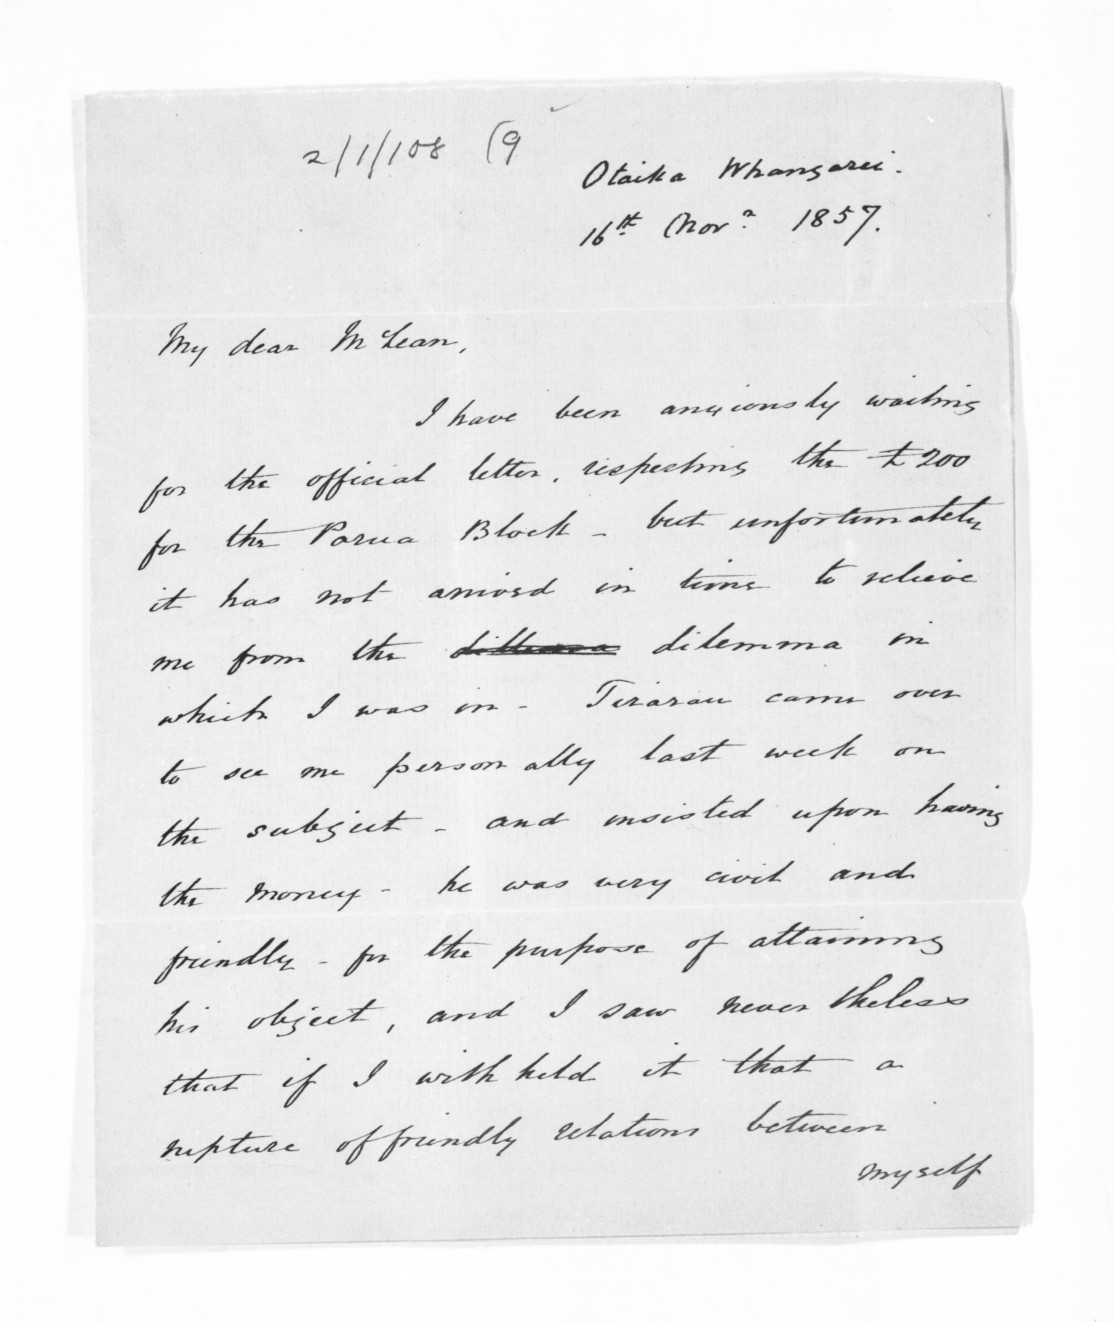 2/1/108 (9
Otaika Whangarei.
16th Novr 1857.
My dear McLean,
I have been anxiously waiting
for the official letter, respecting the £200
for the Parua Block - but unfortunately
it has not arrived in time to relieve
me from the dilemma in
which I was in - Tirarau came over
to see me personally last week on
the subject - and insisted upon having
the money - he was very civil and
friendly - for the purpose of attaining
his object, and I saw never theless
that if I with held it that a
rupture of friendly relations between
myself